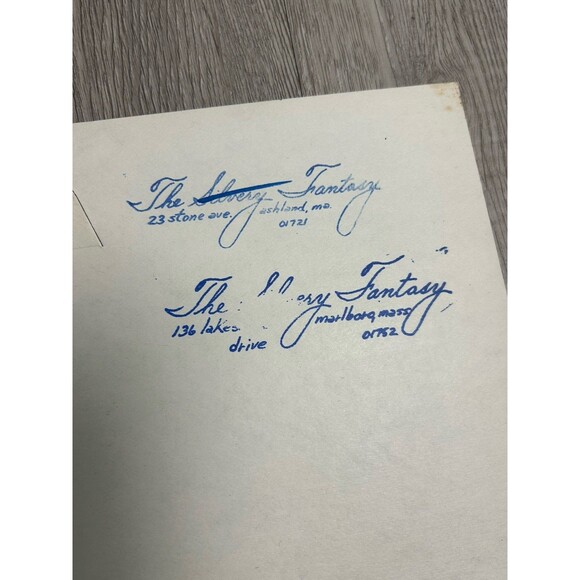 The Silvery Fantasy
23 stone ave. ashland, ma.
01721
The Fantasy
136 lakes marlboro, mass
drive 01752